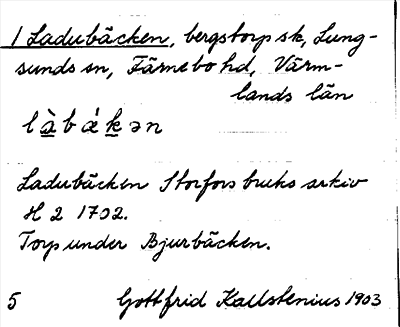 1 Ladubäcken, bergstorp sk, Lung-
sunds sn, Färnebo hd, Värm-
lands län
l à b á̈ k ə n
Ladubäcken Storfors bruks arkiv
H 2 1702.
Torp under Bjurbäcken.
5 Gottfrid Kallstenius 1903